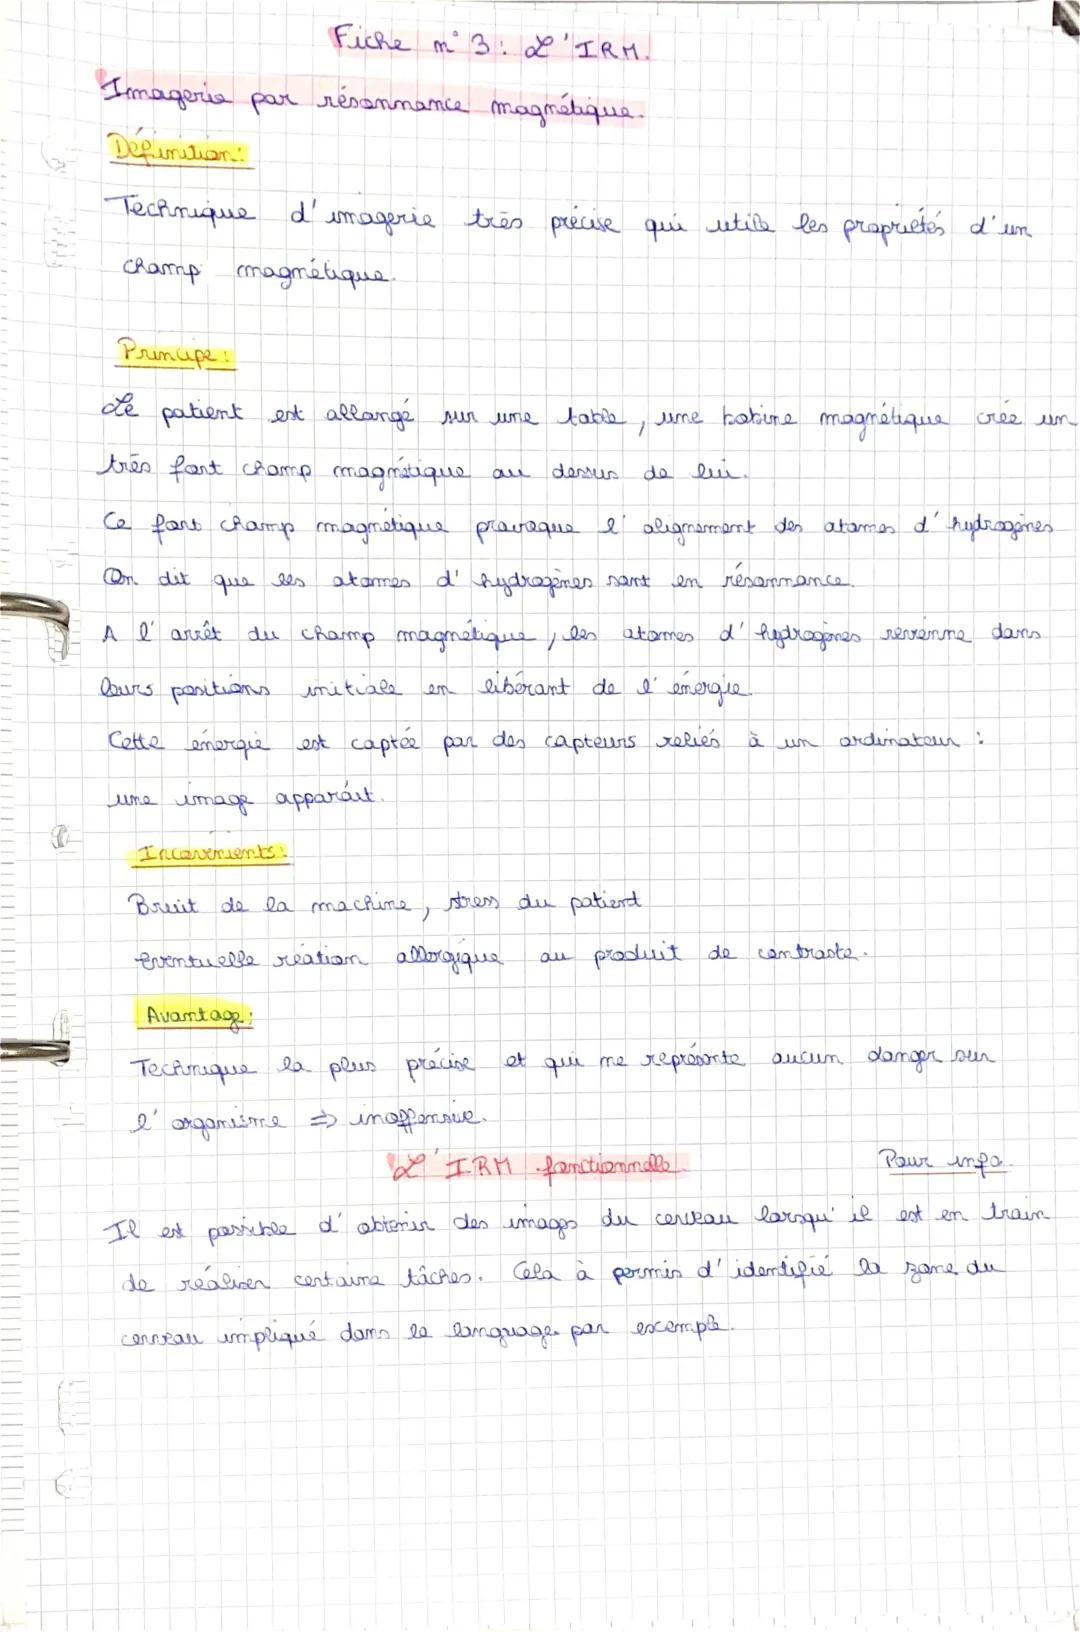 Fiche n° 3 : L'IRM.
Imagerie par résonnance magnétique.
Définition :
Technique d'imagerie très précise qui utile les propriétés d'un
champ magnétique.
Principe :
Le patient est allongé sur une table, une bobine magnétique crée un
très fort champ magnétique au dessus de lui.
Ce fort champ magnétique provoque l'alignement des atomes d'hydrogènes
On dit que les atomes d'hydrogènes sont en résonnance.
A l'arrêt du champ magnétique, les atomes d'hydrogènes revienne dans
leurs positions initiale en libérant de l'énergie.
Cette énergie est captée par des capteurs reliés à un ordinateur :
une image apparaît.
Inconvénients :
Bruit de la machine, stress du patient
Eventuelle réation allergique au produit de contraste.
Avantage :
Technique la plus précise et qui ne représente aucun danger sur
l'organisme => inoffensive.
L'IRM fonctionnelle
Pour info.
Il est possible d'obtenir des images du cerveau lorsqu'il est en train
de réaliser certaine tâches. Cela à permis d'identifié la zone du
cerveau impliqué dans le language par exemple.